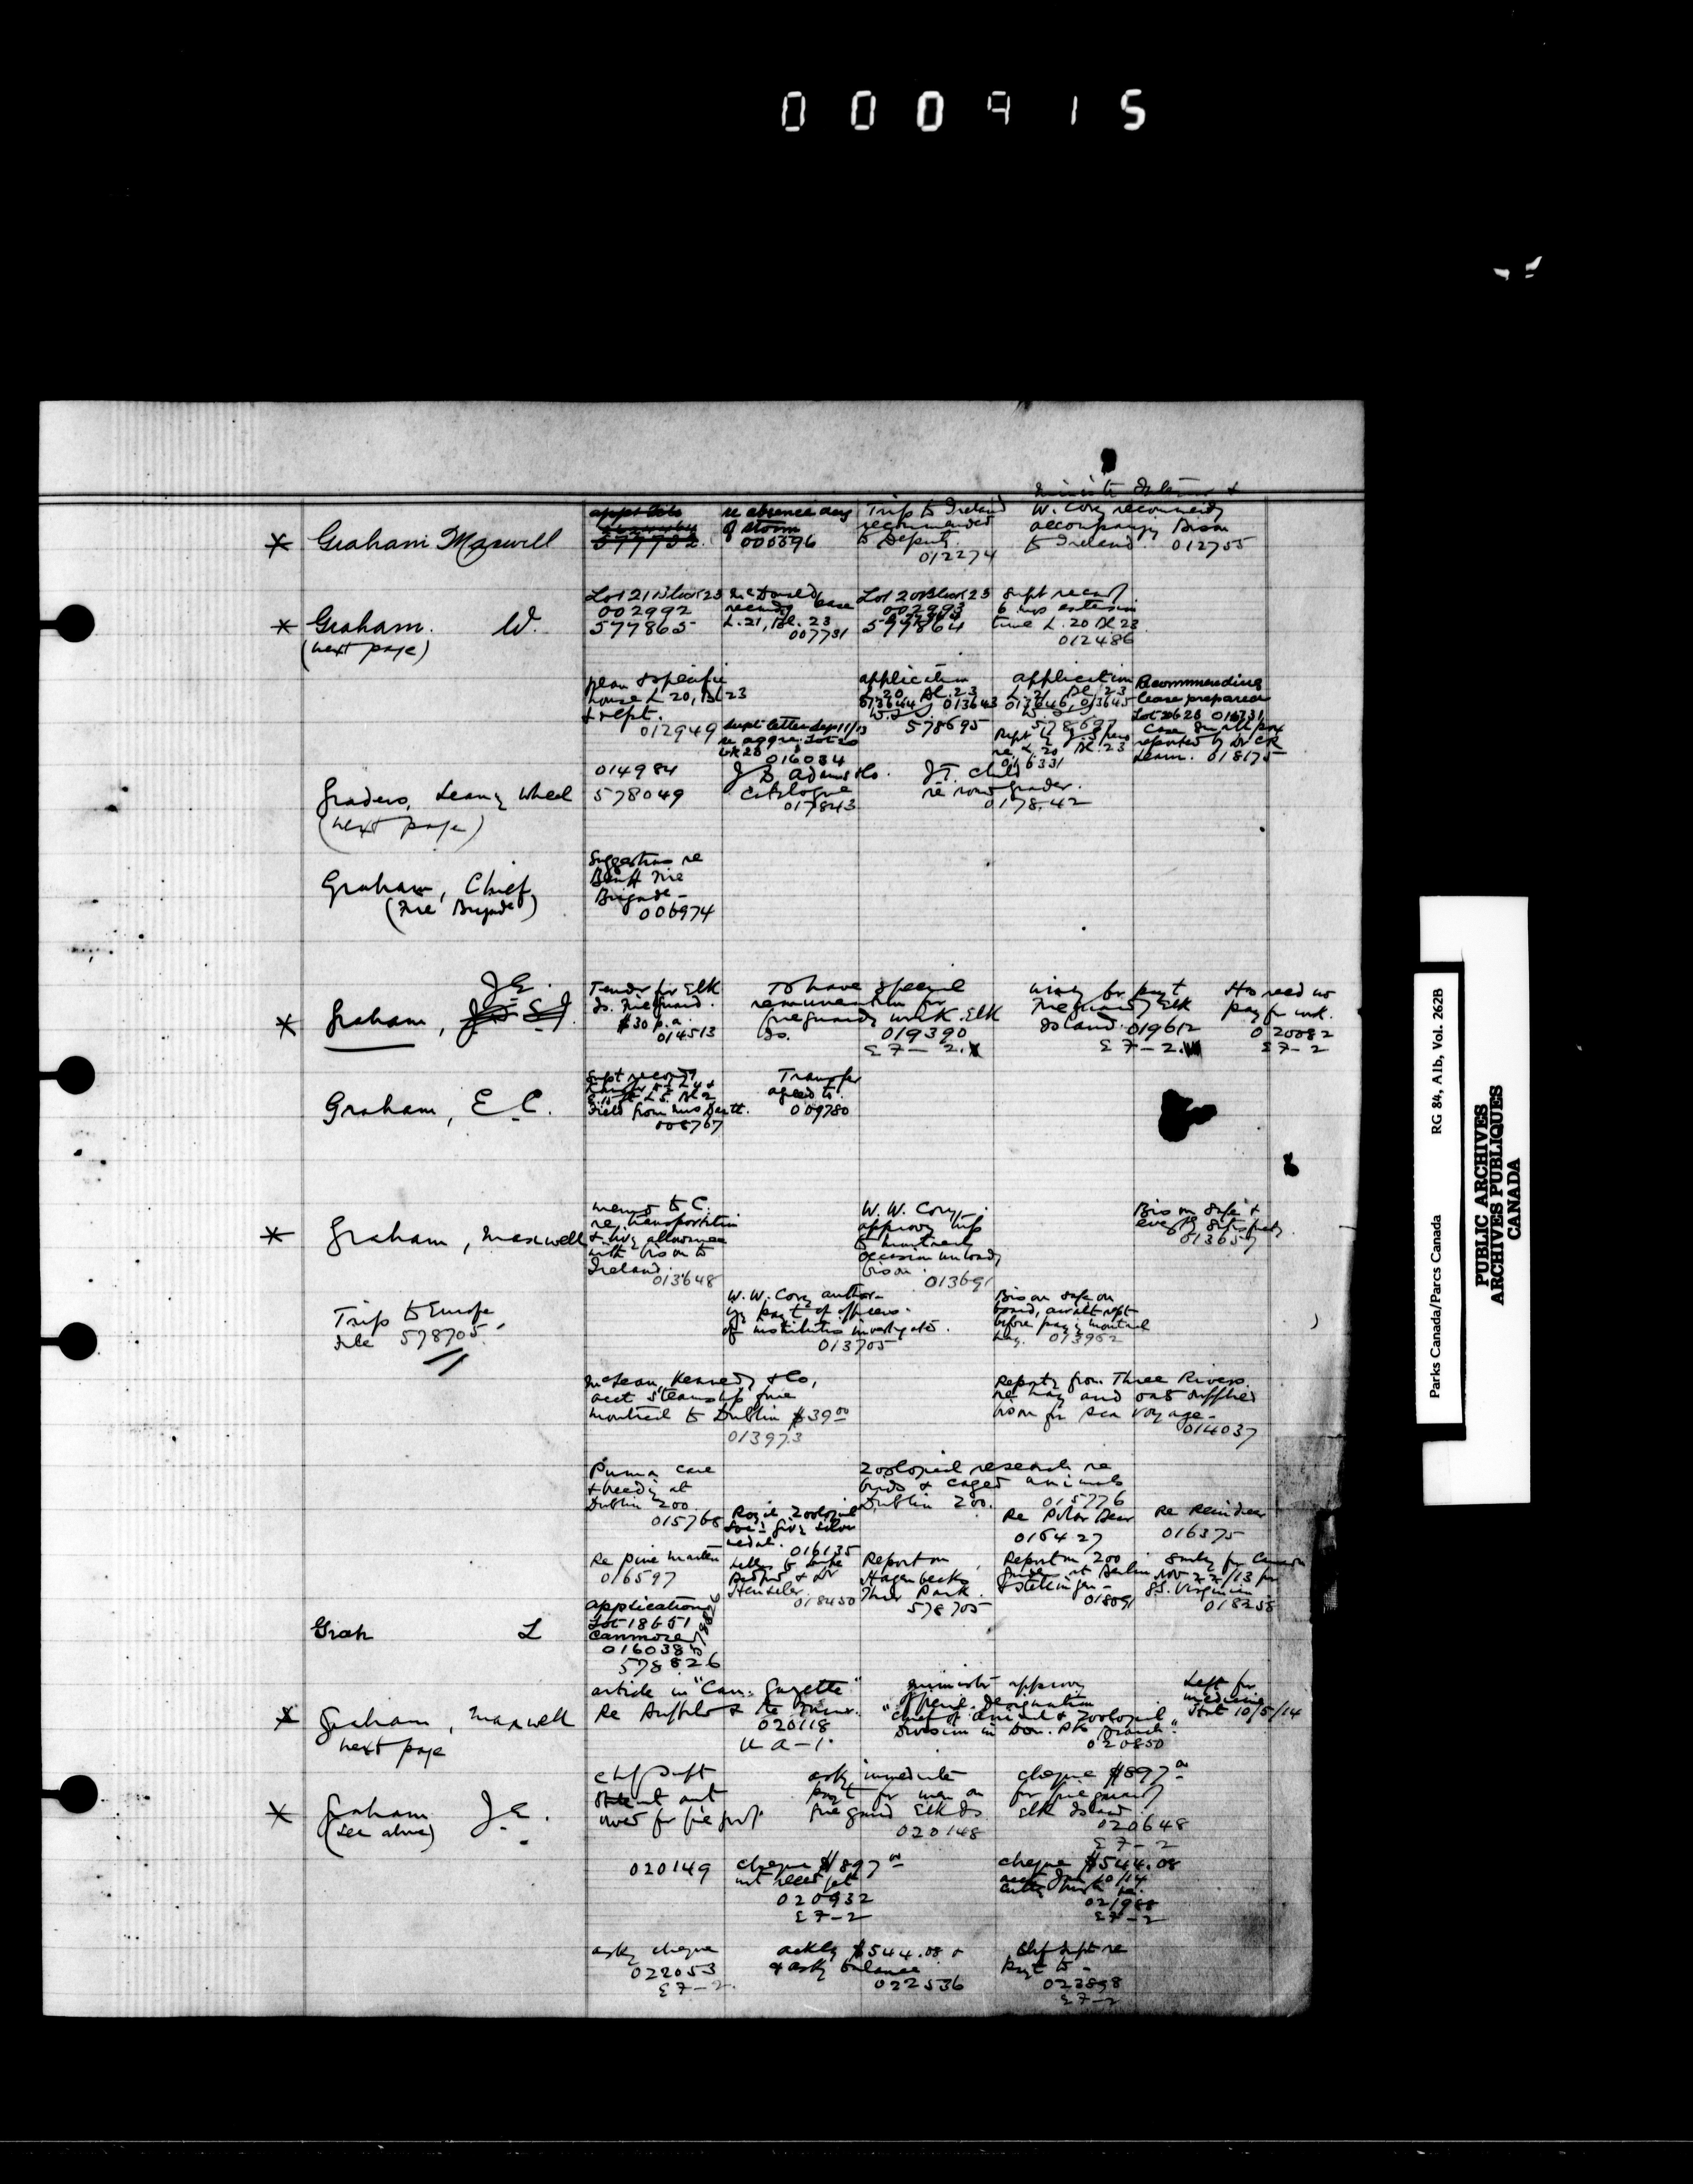 000915
* Graham Maxwell
577752
re absence aug
of storm
000596
Trip to Ireland
recommended
to Deputy.
012274
W. Cory recommends
accompanying Bison
to Ireland. 012755
* Graham. W.
(next page)
Lot 21 Block 23
002992
577865
L. 21, Bl. 23
007731
Lot 20 Block 23
002993
577864
Supt recom
6 mos extension
time L. 20 Bl 23
012486
plan & specific
house L 20, Bl 23
& rept.
012949
Supt. letter Sep 11/13
016034
application
L. 20 Bl. 23
013644 013643
578695
application
L. 21 Bl. 23
013646, 013645
578697
016331
Recommending
lease prepared
reported by Dr
018175
Graders, Leaning Wheel
(next page)
014984
578049
J D Adams & Co.
Catalogue
017843
J.T. Child
re road grader.
017842
Graham, Chief
(Fire Brigade)
Suggestions re
Banff Fire
Brigade -
006974
* Graham, J E.
Tender for Elk
Is. Fireguard.
$30 p.a.
014513
To have special
remuneration for
fireguard work Elk
Is. 019390
E 7 - 2.
wiring for payt
Fireguard Elk
Island. 019612
E 7 - 2.
Has recd no
pay for work.
020082
E 7 - 2
Graham, E. C.
Field from Mrs
008767
Transfer
agreed to.
009780
* Graham, Maxwell
memo to C.
re transportation
& living allowance
with bison to
Ireland.
013648
W. W. Cory,
approving trip
to Montreal
occasion unloading
bison. 013691
Bison safe &
everything satisfactory.
013657
Trip to Europe
File 578705.
W. W. Cory author-
izing payt of officers
of institutes investigated.
013705
Bison safe on
board, await rept
before paying Montreal
013952
McLean, Kennedy & Co,
acct steamship fare
Montreal to Dublin $39.00
013973
Reports from Three Rivers
re hay and oats supplied
bison for sea voyage -
014037
Puma care
& breeding at
Dublin Zoo.
015768
Royal Zoological
Soc'y giving silver
medal. 016135
Zoological research re
birds & caged animals
Dublin Zoo. 015776
Re Polar Bear
016427
Re Reindeer
016375
Re pine marten
016597
Letters to Duke
Bedford & Dr
018450
Report on
Hagenbecks
Thier Park.
578705
Report on Zoo
Garden at Berlin
& Stellingen -
018091
Nov 22/13 per
SS. Virginian
018258
Grah L
application
Lot 18 B 51
Canmore
016038
578826
* Graham, Maxwell
next page
article in "Can: Gazette"
Re Buffalo &
020118
U A - 1.
Minister approving
"Chief of Animal & Zoological
Division in Dom. Pks Branch."
020850
Left for
Medicine
Hat 10/5/14
* Graham J. E.
(see above)
Chf Supt
owed for fire prof
020149
asking immediate
payt for man on
fire guard Elk Is.
020148
cheque $897.00
for fire guard
Elk Island.
020648
E 7 - 2
cheque $897.00
not recd yet
020932
E 7 - 2
cheque $544.08
021988
E 7 - 2
asking cheque
022053
E 7 - 2.
ackg $544.08 &
& asking balance
022536
Chf Supt re
payt to -
023898
E 7 - 2
Parks Canada/Parcs Canada RG 84, Alb, Vol. 262B
PUBLIC ARCHIVES
ARCHIVES PUBLIQUES
CANADA